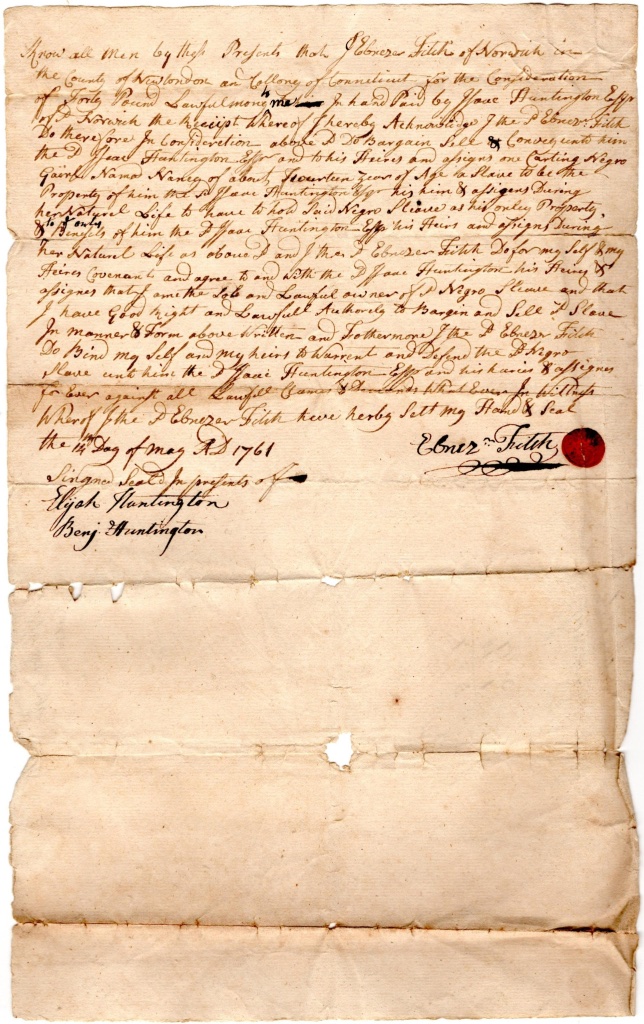 Know all Men by these Presents that I Ebenezer Fitch of Norwich in
the County of Newlondon an Collony of Connecticut for the Consideration
of Forty Pound Lawfulmony to me In hand Paid by Isaac Huntington Esqr
of sd Norwich the Receipt Whereof I hereby Acknowledge I the sd Ebnezr Fitch
Do therefore In Consideration above sd Do Bargain Sell & Convey unto him
the sd Isaac Huntington Esqr and to his Heires and assigns one Negro
Gairl Named Nancy of about fourteen years of Age a Slave to be the
Property of him the sd Isaac Huntington Esqr his & assigens During
her Naturel Life to have to hold Said Nigro Slave as his onley Property,
& to ye only Benefit of him the sd Isaac Huntington Esqr his Heirs and assigns During
her Natural Life as above sd and I the sd Ebenezer Fitch Do for my Self & my
Heires Covenant and agree to and with the sd Isaac Huntington his Heires &
assignes that I ame the Sole and Lawful owner of sd Negro Slave and that
I have Good Right and Lawfull Authority to Bargin and Sell sd Slave
In manner & Form above Written and Fothermore I the sd Ebnezer Fitch
Do Bind my Self and my heirs to Warrent and Defend the sd Nigro
Slave unto him the sd Isaac Huntington Esqr and his & assignes
for Ever against all Lawfull Clames & Demands What Ever In Wittness
Whereof I the sd Ebnezer Fitch have herby Sett my Hand & Seal
the 14th Day of May AD 1761
Ebnezr Fitch
Singned Seald In presents of
Elijah Huntington
Benj. Huntington